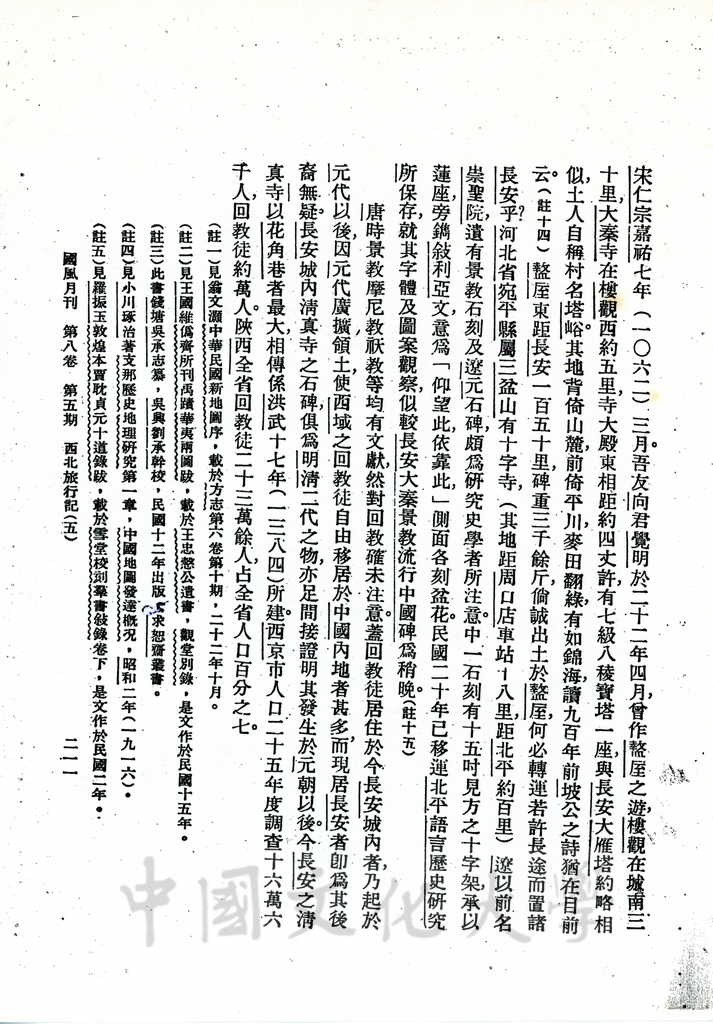 宋仁宗嘉祐七年(一〇六二)三月。吾友向君覺明於二十二年四月,曾作盩厔之遊,樓觀在城南三
十里,大秦寺在樓觀西約五里,寺大殿東相距約四丈許,有七級八稜寶塔一座,與長安大雁塔約略相
似,土人自稱村名塔峪。其地背倚山麓,前倚平川,麥田翻綠,有如錦海,讀九百年前坡公之詩,猶在目前
云。(註十四)盩厔東距長安一百五十里,碑重三千餘斤,倘誠出土於盩厔,何必轉運若許長途而置諸
長安乎?河北省宛平縣屬三盆山有十字寺(其地距周口店車站十八里,距北平約百里)遼以前名
崇聖院,遺有景教石刻及遼元石碑,頗爲研究史學者所注意。中一石刻有十五吋見方之十字架,承以
蓮座,旁鐫敍利亞文,意爲「仰望此,依靠此」側面各刻盆花。民國二十年已移運北平語言歷史研究
所保存,就其字體及圖案觀察,似較長安大秦景教流行中國碑爲稍晚。(註十五)
唐時景教摩尼教祆教等均有文獻,然對回教確未注意。蓋回教徒居住於今長安城內者,乃起於
元代以後,因元代廣擴領土,使西域之回教徒自由移居於中國內地者甚多,而現居長安者卽爲其後
裔無疑。長安城內清真寺之石碑,俱爲明清二代之物,亦足間接證明其發生於元朝以後。今長安之清
真寺以花角巷者最大,相傳係洪武十七年(一三八四)所建。西京市人口二十五年度調查十六萬六
千人,回教徒約萬人。陝西全省回教徒二十三萬餘人,占全省人口百分之七。
(註一)見翁文灝中華民國新地圖序,載於方志第六卷第十期,二十二年十月。
(註二)見王國維僞齊所刊禹蹟華夷兩圖跋,載於王忠慤公遺書,觀堂別錄,是文作於民國十五年。
(註三)此書錢塘吳承志纂,吳興劉承幹校,民國十二年出版,求恕齋叢書。
(註四)見小川琢治著支那歷史地理研究第一章,中國地圖發達槪況,昭和二年(一九一六)。
(註五)見羅振玉敦煌本賈耽貞元十道錄跋,載於雪堂校刻羣書敍錄卷下,是文作於民國二年。
國風月刊 第八卷 第五期 西北旅行記(五)
二一一
中國文化大學